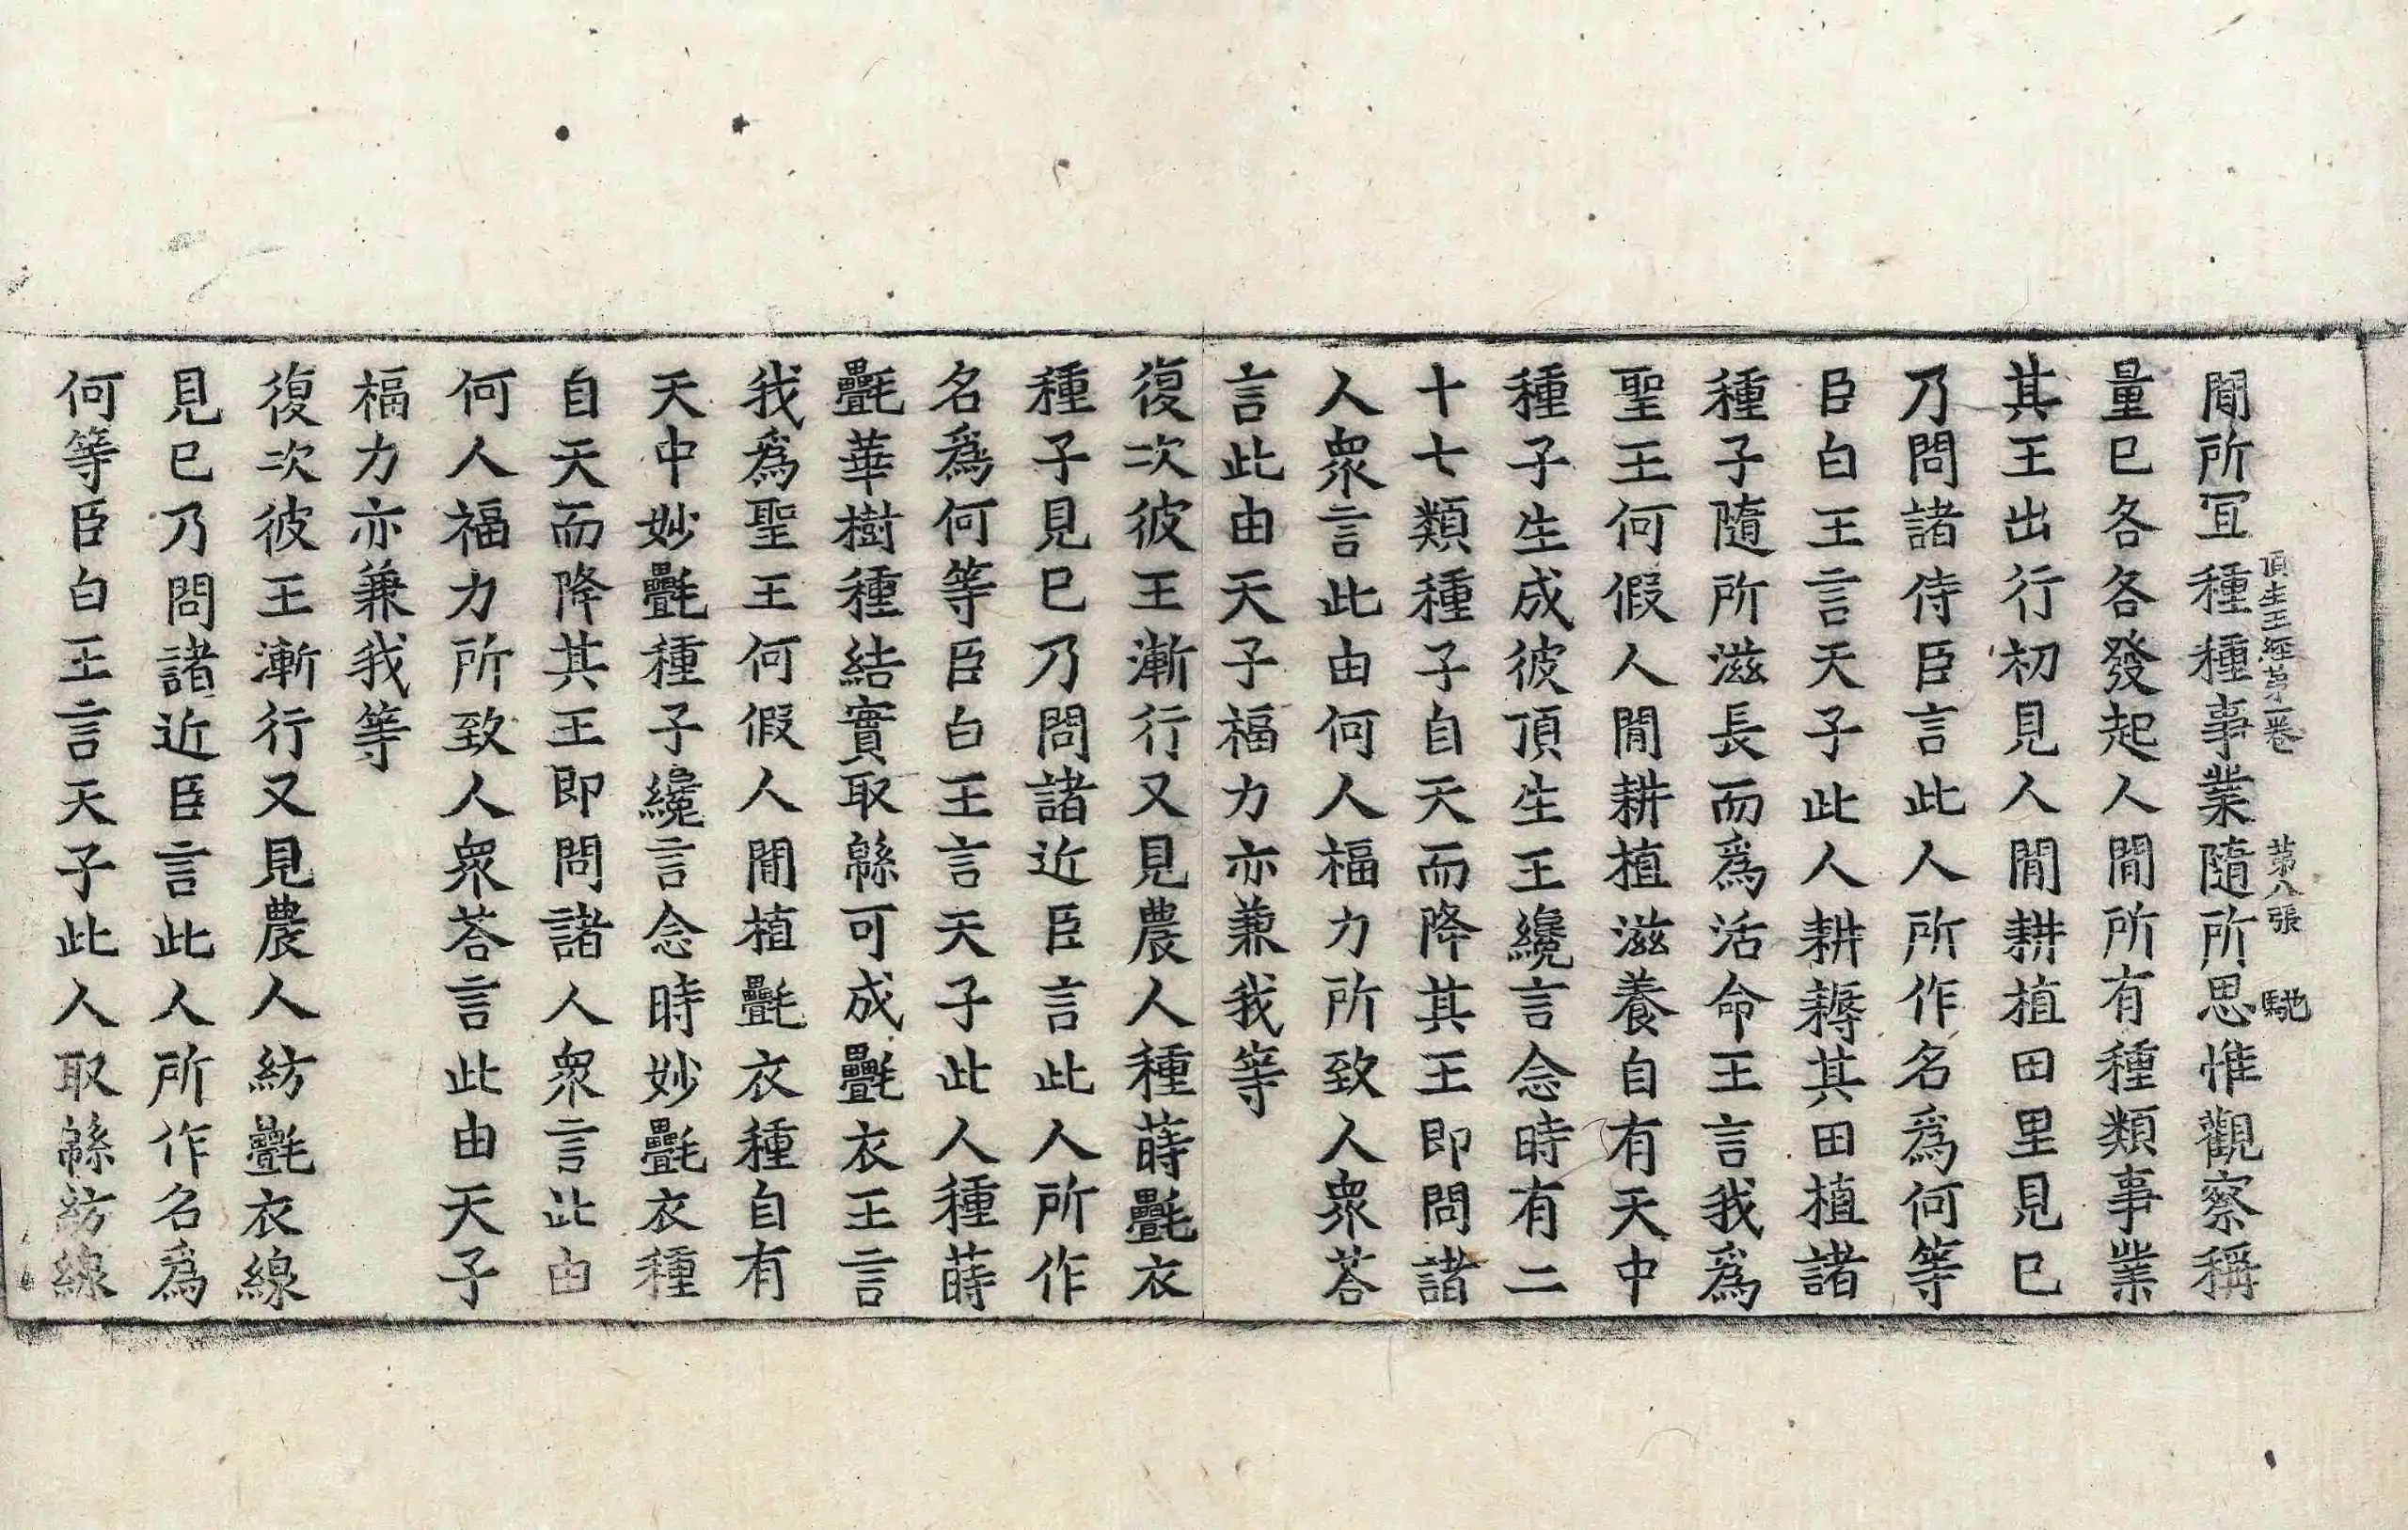 頂生王經第一卷　第八張　馳
閒所冝種種事業隨所思惟觀察稱
量巳各各發起人閒所有種類事業
其王出行初見人閒耕植田里見巳
乃問諸侍臣言此人所作名爲何等
臣白王言天子此人耕耨其田植諸
種子隨所滋長而爲活命王言我爲
聖王何假人閒耕植滋養自有天中
種子生成彼頂生王纔言念時有二
十七類種子自天而降其王即問諸
人衆言此由何人福力所致人衆荅
言此由天子福力亦兼我等
復次彼王漸行又見農人種蒔㲲衣
種子見巳乃問諸近臣言此人所作
名爲何等臣白王言天子此人種蒔
㲲華樹種結實取緜可成㲲衣王言
我爲聖王何假人閒植㲲衣種自有
天中妙㲲種子纔言念時妙㲲衣種
自天而降其王即問諸人衆言此由
何人福力所致人衆荅言此由天子
福力亦兼我等
復次彼王漸行又見農人紡㲲衣線
見巳乃問諸近臣言此人所作名爲
何等臣白王言天子此人取緜紡線